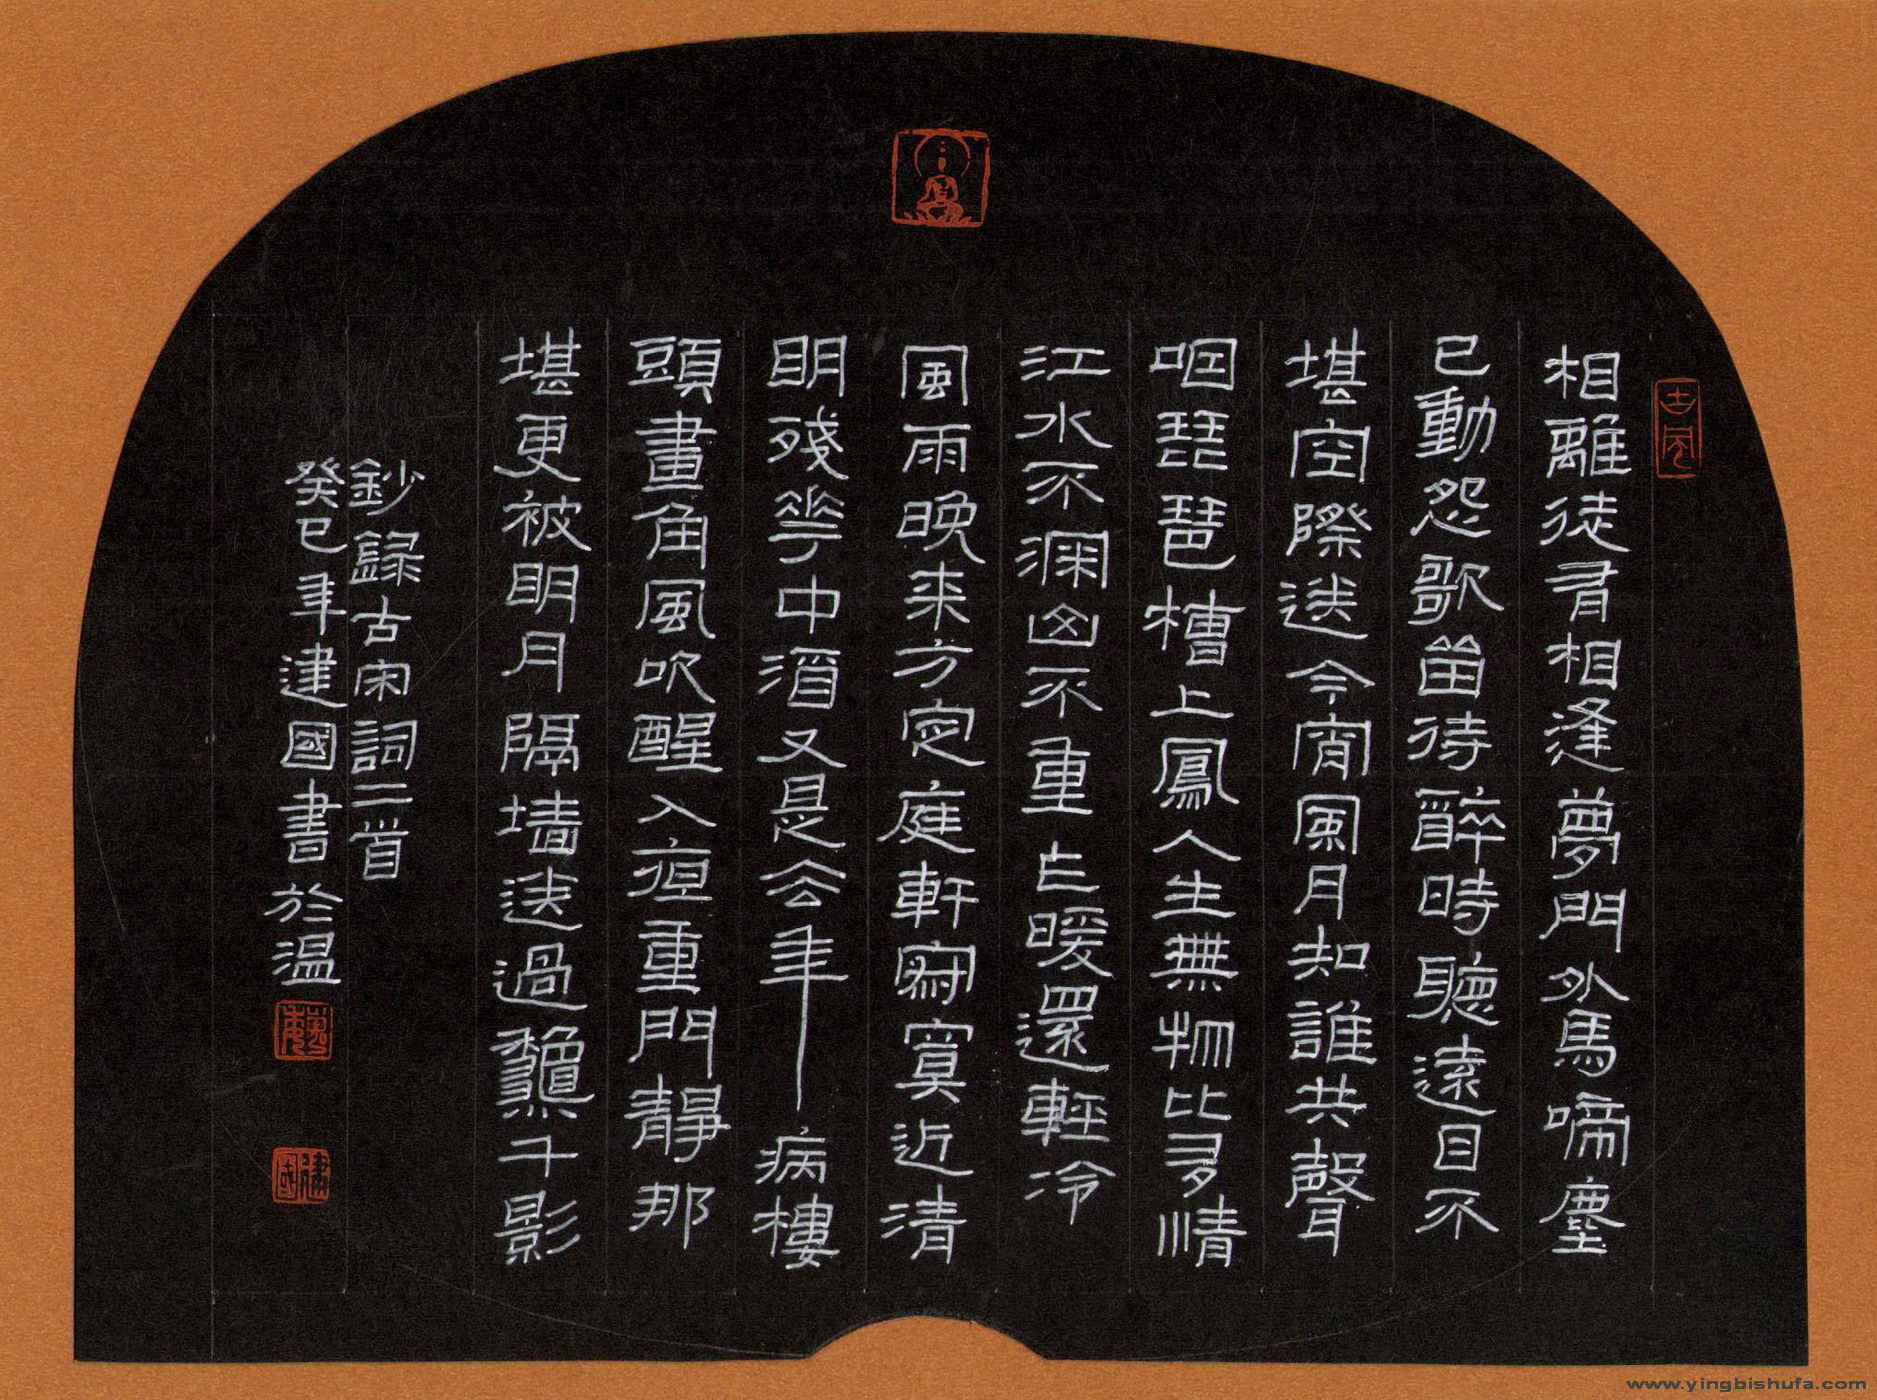 相離徒有相逢夢門外馬啼塵
已動怨歌留待醉時聽遠目不
堪空際送今宵風月知誰共聲
咽琵琶槽上鳳人生無物比多情
江水不深山不重乍暖還輕冷
風雨晚来方定庭軒寂寞近清
明殘花中酒又是去年病樓
頭畫角風吹醒入夜重門靜那
堪更被明月隔墙送過龝千影
鈔録古宋詞二首
癸巳年建國書於温
www.yingbishufa.com